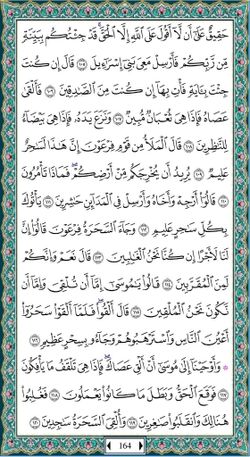 حَقِيقٌ عَلَىٰٓ أَن لَّآ أَقُولَ عَلَى ٱللَّهِ إِلَّا ٱلْحَقَّ قَدْ جِئْتُكُم بِبَيِّنَةٍ
مِّن رَّبِّكُمْ فَأَرْسِلْ مَعِىَ بَنِىٓ إِسْرَٰٓءِيلَ ١٠٥ قَالَ إِن كُنتَ
جِئْتَ بِـَٔايَةٍ فَأْتِ بِهَآ إِن كُنتَ مِنَ ٱلصَّٰدِقِينَ ١٠٦ فَأَلْقَىٰ
عَصَاهُ فَإِذَا هِىَ ثُعْبَانٌ مُّبِينٌ ١٠٧ وَنَزَعَ يَدَهُۥ فَإِذَا هِىَ بَيْضَآءُ
لِلنَّٰظِرِينَ ١٠٨ قَالَ ٱلْمَلَأُ مِن قَوْمِ فِرْعَوْنَ إِنَّ هَٰذَا لَسَٰحِرٌ
عَلِيمٌ ١٠٩ يُرِيدُ أَن يُخْرِجَكُم مِّنْ أَرْضِكُمْ فَمَاذَا تَأْمُرُونَ
١١٠ قَالُوٓا۟ أَرْجِهْ وَأَخَاهُ وَأَرْسِلْ فِى ٱلْمَدَآئِنِ حَٰشِرِينَ ١١١ يَأْتُوكَ
بِكُلِّ سَٰحِرٍ عَلِيمٍ ١١٢ وَجَآءَ ٱلسَّحَرَةُ فِرْعَوْنَ قَالُوٓا۟ إِنَّ
لَنَا لَأَجْرًا إِن كُنَّا نَحْنُ ٱلْغَٰلِبِينَ ١١٣ قَالَ نَعَمْ وَإِنَّكُمْ
لَمِنَ ٱلْمُقَرَّبِينَ ١١٤ قَالُوا۟ يَٰمُوسَىٰٓ إِمَّآ أَن تُلْقِىَ وَإِمَّآ أَن
نَّكُونَ نَحْنُ ٱلْمُلْقِينَ ١١٥ قَالَ أَلْقُوا۟ فَلَمَّآ أَلْقَوْا۟ سَحَرُوٓا۟
أَعْيُنَ ٱلنَّاسِ وَٱسْتَرْهَبُوهُمْ وَجَآءُو بِسِحْرٍ عَظِيمٍ ١١٦
۞ وَأَوْحَيْنَآ إِلَىٰ مُوسَىٰٓ أَنْ أَلْقِ عَصَاكَ فَإِذَا هِىَ تَلْقَفُ مَا يَأْفِكُونَ
١١٧ فَوَقَعَ ٱلْحَقُّ وَبَطَلَ مَا كَانُوا۟ يَعْمَلُونَ ١١٨ فَغُلِبُوا۟
هُنَالِكَ وَٱنقَلَبُوا۟ صَٰغِرِينَ ١١٩ وَأُلْقِىَ ٱلسَّحَرَةُ سَٰجِدِينَ ١٢٠
164